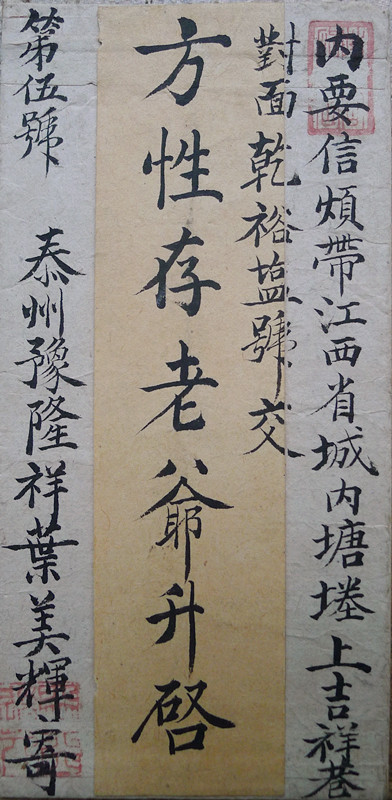 內要信煩帶江西省城內塘塍上吉祥巷
對面乾裕盐號交
方性存老爺升啓
第伍號
泰州豫隆祥葉美輝寄